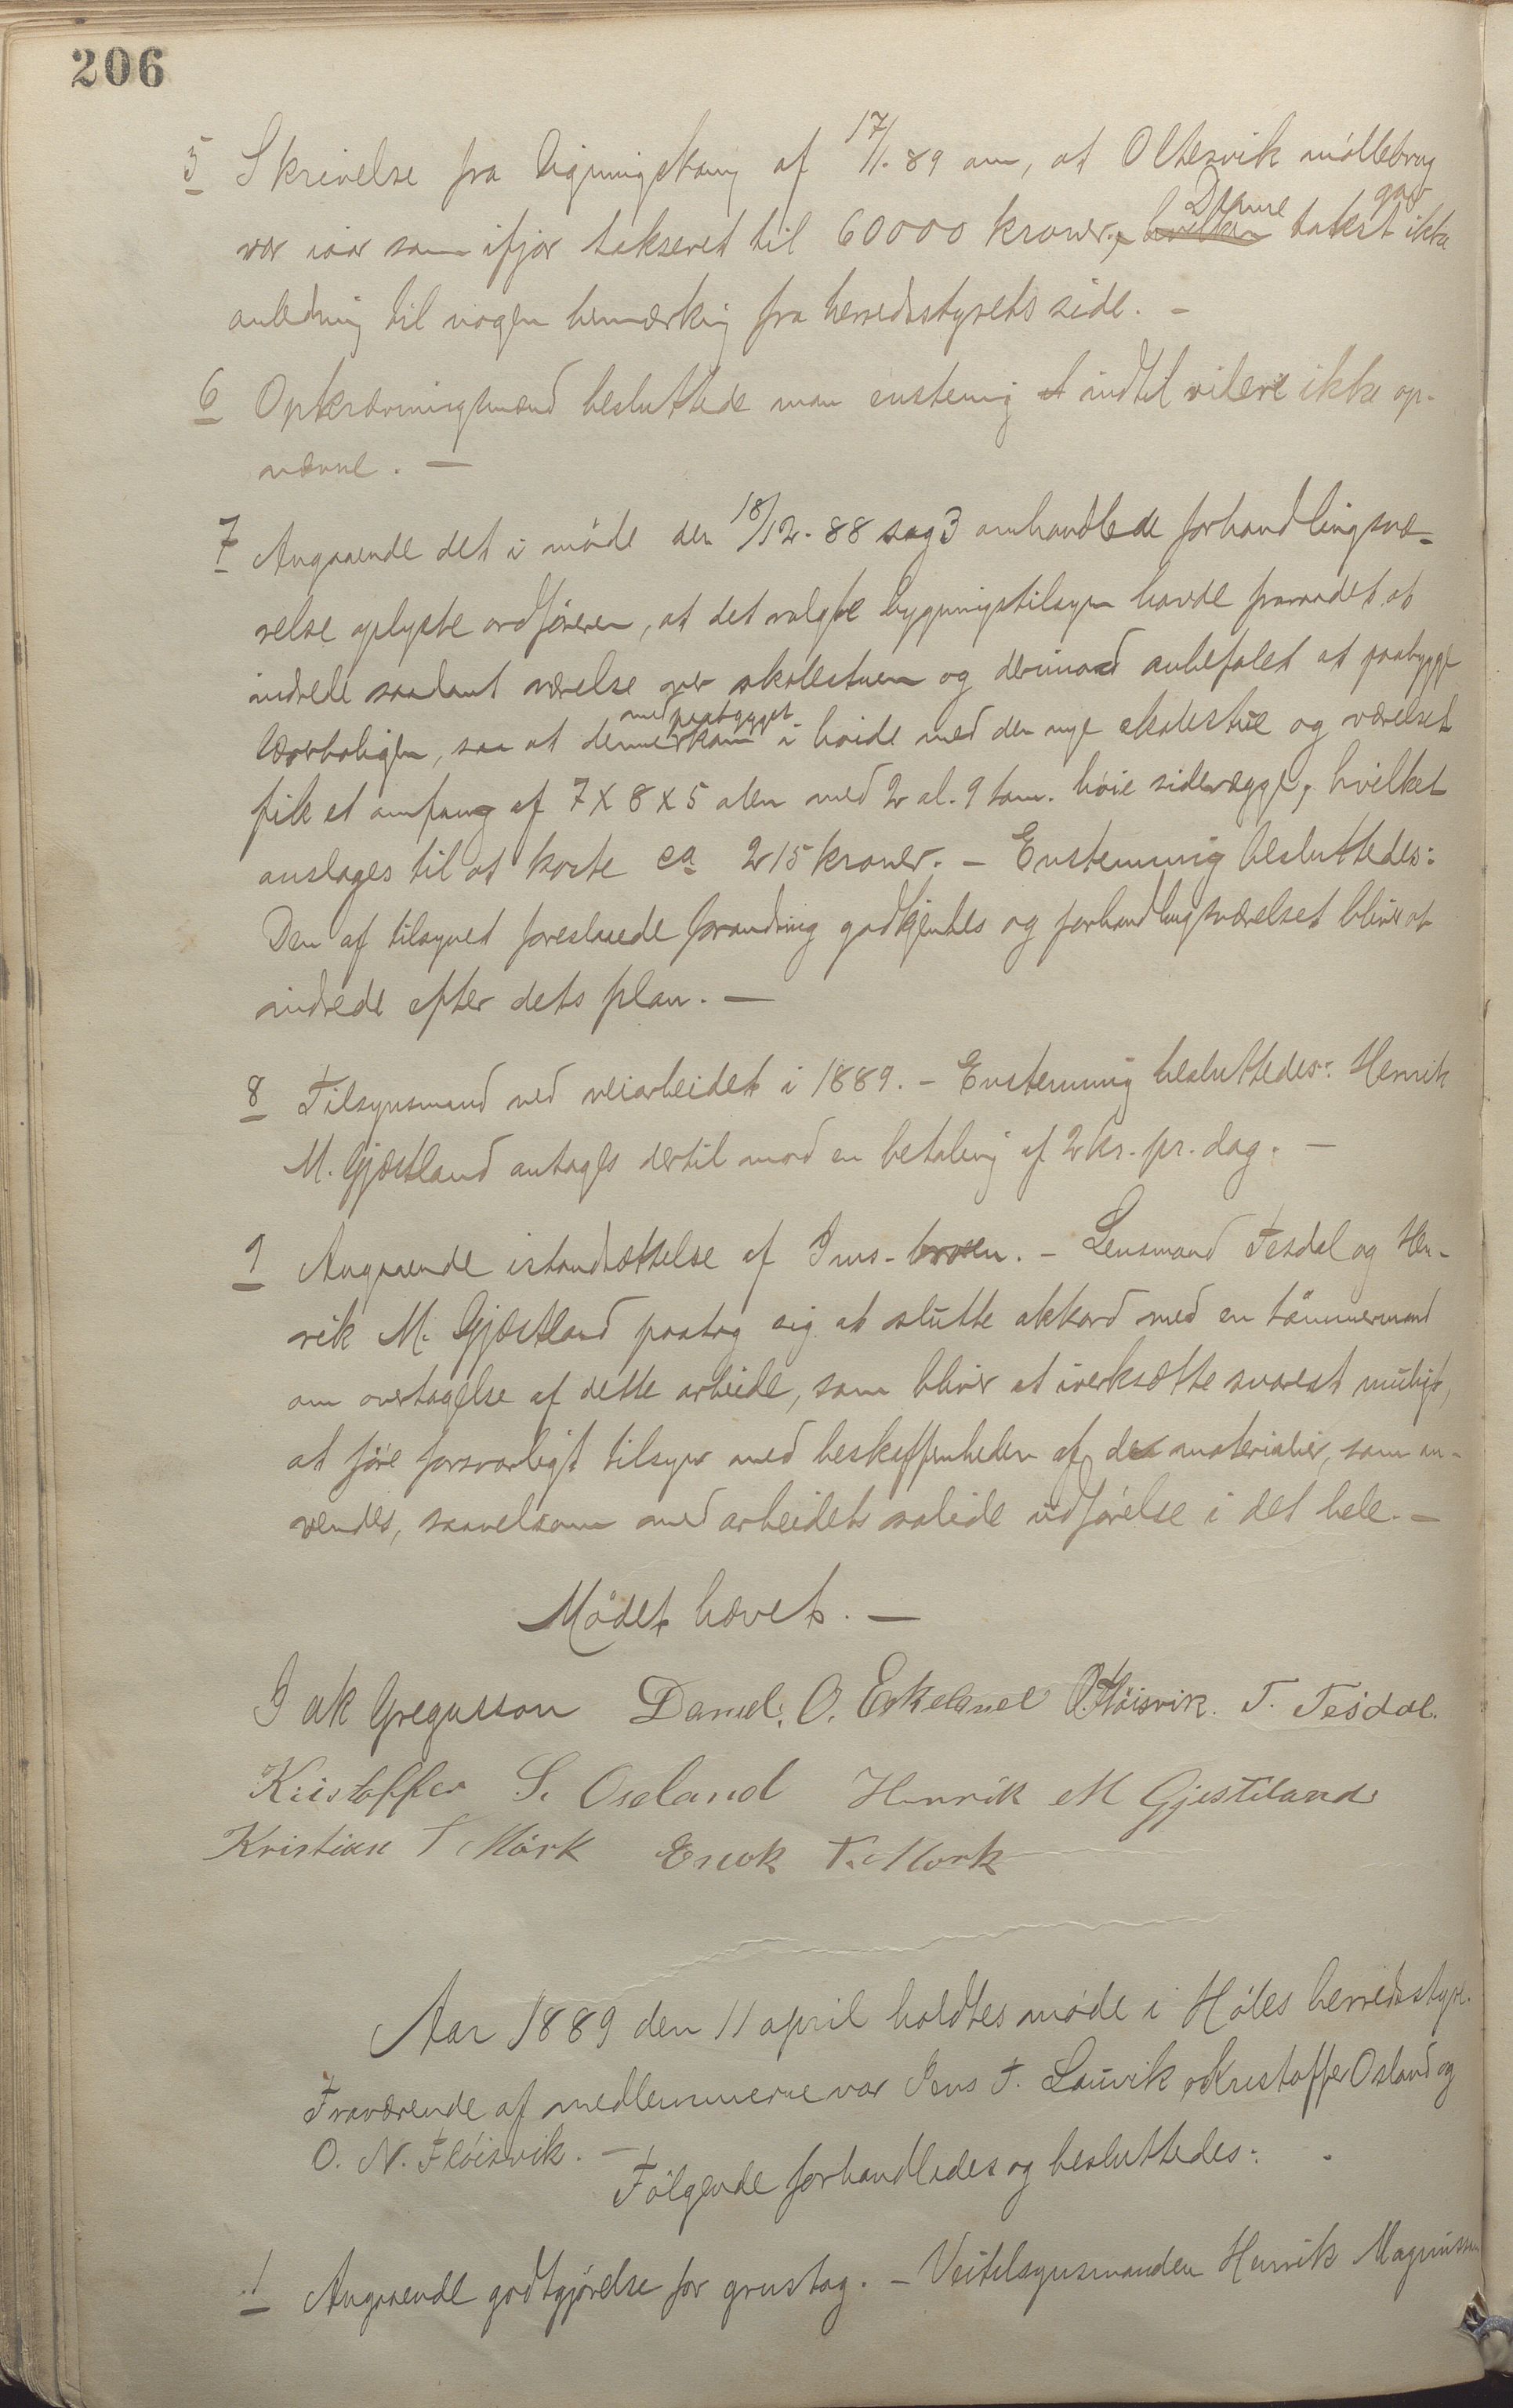 206
5 Skrivelse fra ligningskom. af 17/1.89 om, at Oltesvik møllebrug
var iaar som ifjor takseret til 60000 kroner, hvilken Denne takst gav ikke
anledning til nogen bemærkning fra herredsstyrets side. —
6 Opkrævningsmænd besluttede man enstemmig at indtil videre ikke op-
nævne. —
7 Angaaende det i møde den 18/12.88 sag 3 omhandlede forhandlingsvæ-
relse oplyste ordføreren, at det valgte bygningstilsyn havde fraraadet at
indrede saadant værelse over skolestuen og derimod anbefalet at paabygge
lærerboligen, saa at denne med paabygget kom i høide med den nye skolestue og værelset
fik et omfang af 7 x 8 x 5 alen med 2 al. 9 tom. høie sidevægge, hvilket
anslages til at koste ca 215 kroner. — Enstemmig besluttedes:
Den af tilsynet foreslaaede forandring godkjendtes og forhandlingsværelset bliver at
indrede efter dets plan. —
8 Tilsynsmand ved veiarbeidet i 1889. — Enstemmig besluttedes: Henrik
M. Gjæstland antages dertil mod en betaling af 2 kr. pr. dag. —
9 Angaaende istandsættelse af Ims-broen. — Lensmand Tesdal og Hen-
rik M. Gjæstland paatog sig at slutte akkord med en tømmermand
om overtagelse af dette arbeide, som bliver at iverksætte snarest muligt,
at føre forsvarligt tilsyn med beskaffenheden af de materialier, som an-
vendes, saavelsom med arbeidets solide udførelse i det hele. —
Mødet hævet. —
Jak Gregusson Daniel. O. Eskeland O. Fløisvik. T. Tesdal.
Kristoffer S. Oseland Henrik M Gjesteland
Kristian T Mørk Enok T. Mørk
Aar 1889 den 11 april holdtes møde i Høles herredsstyre.
Fraværende af medlemmerne var Jens T. Lauvik, Kristoffer Osland og
O. N. Fløisvik. —
Følgende forhandledes og besluttedes:
1 Angaaende godtgjørelse for grustag. — Veitilsynsmanden Henrik Magnussen